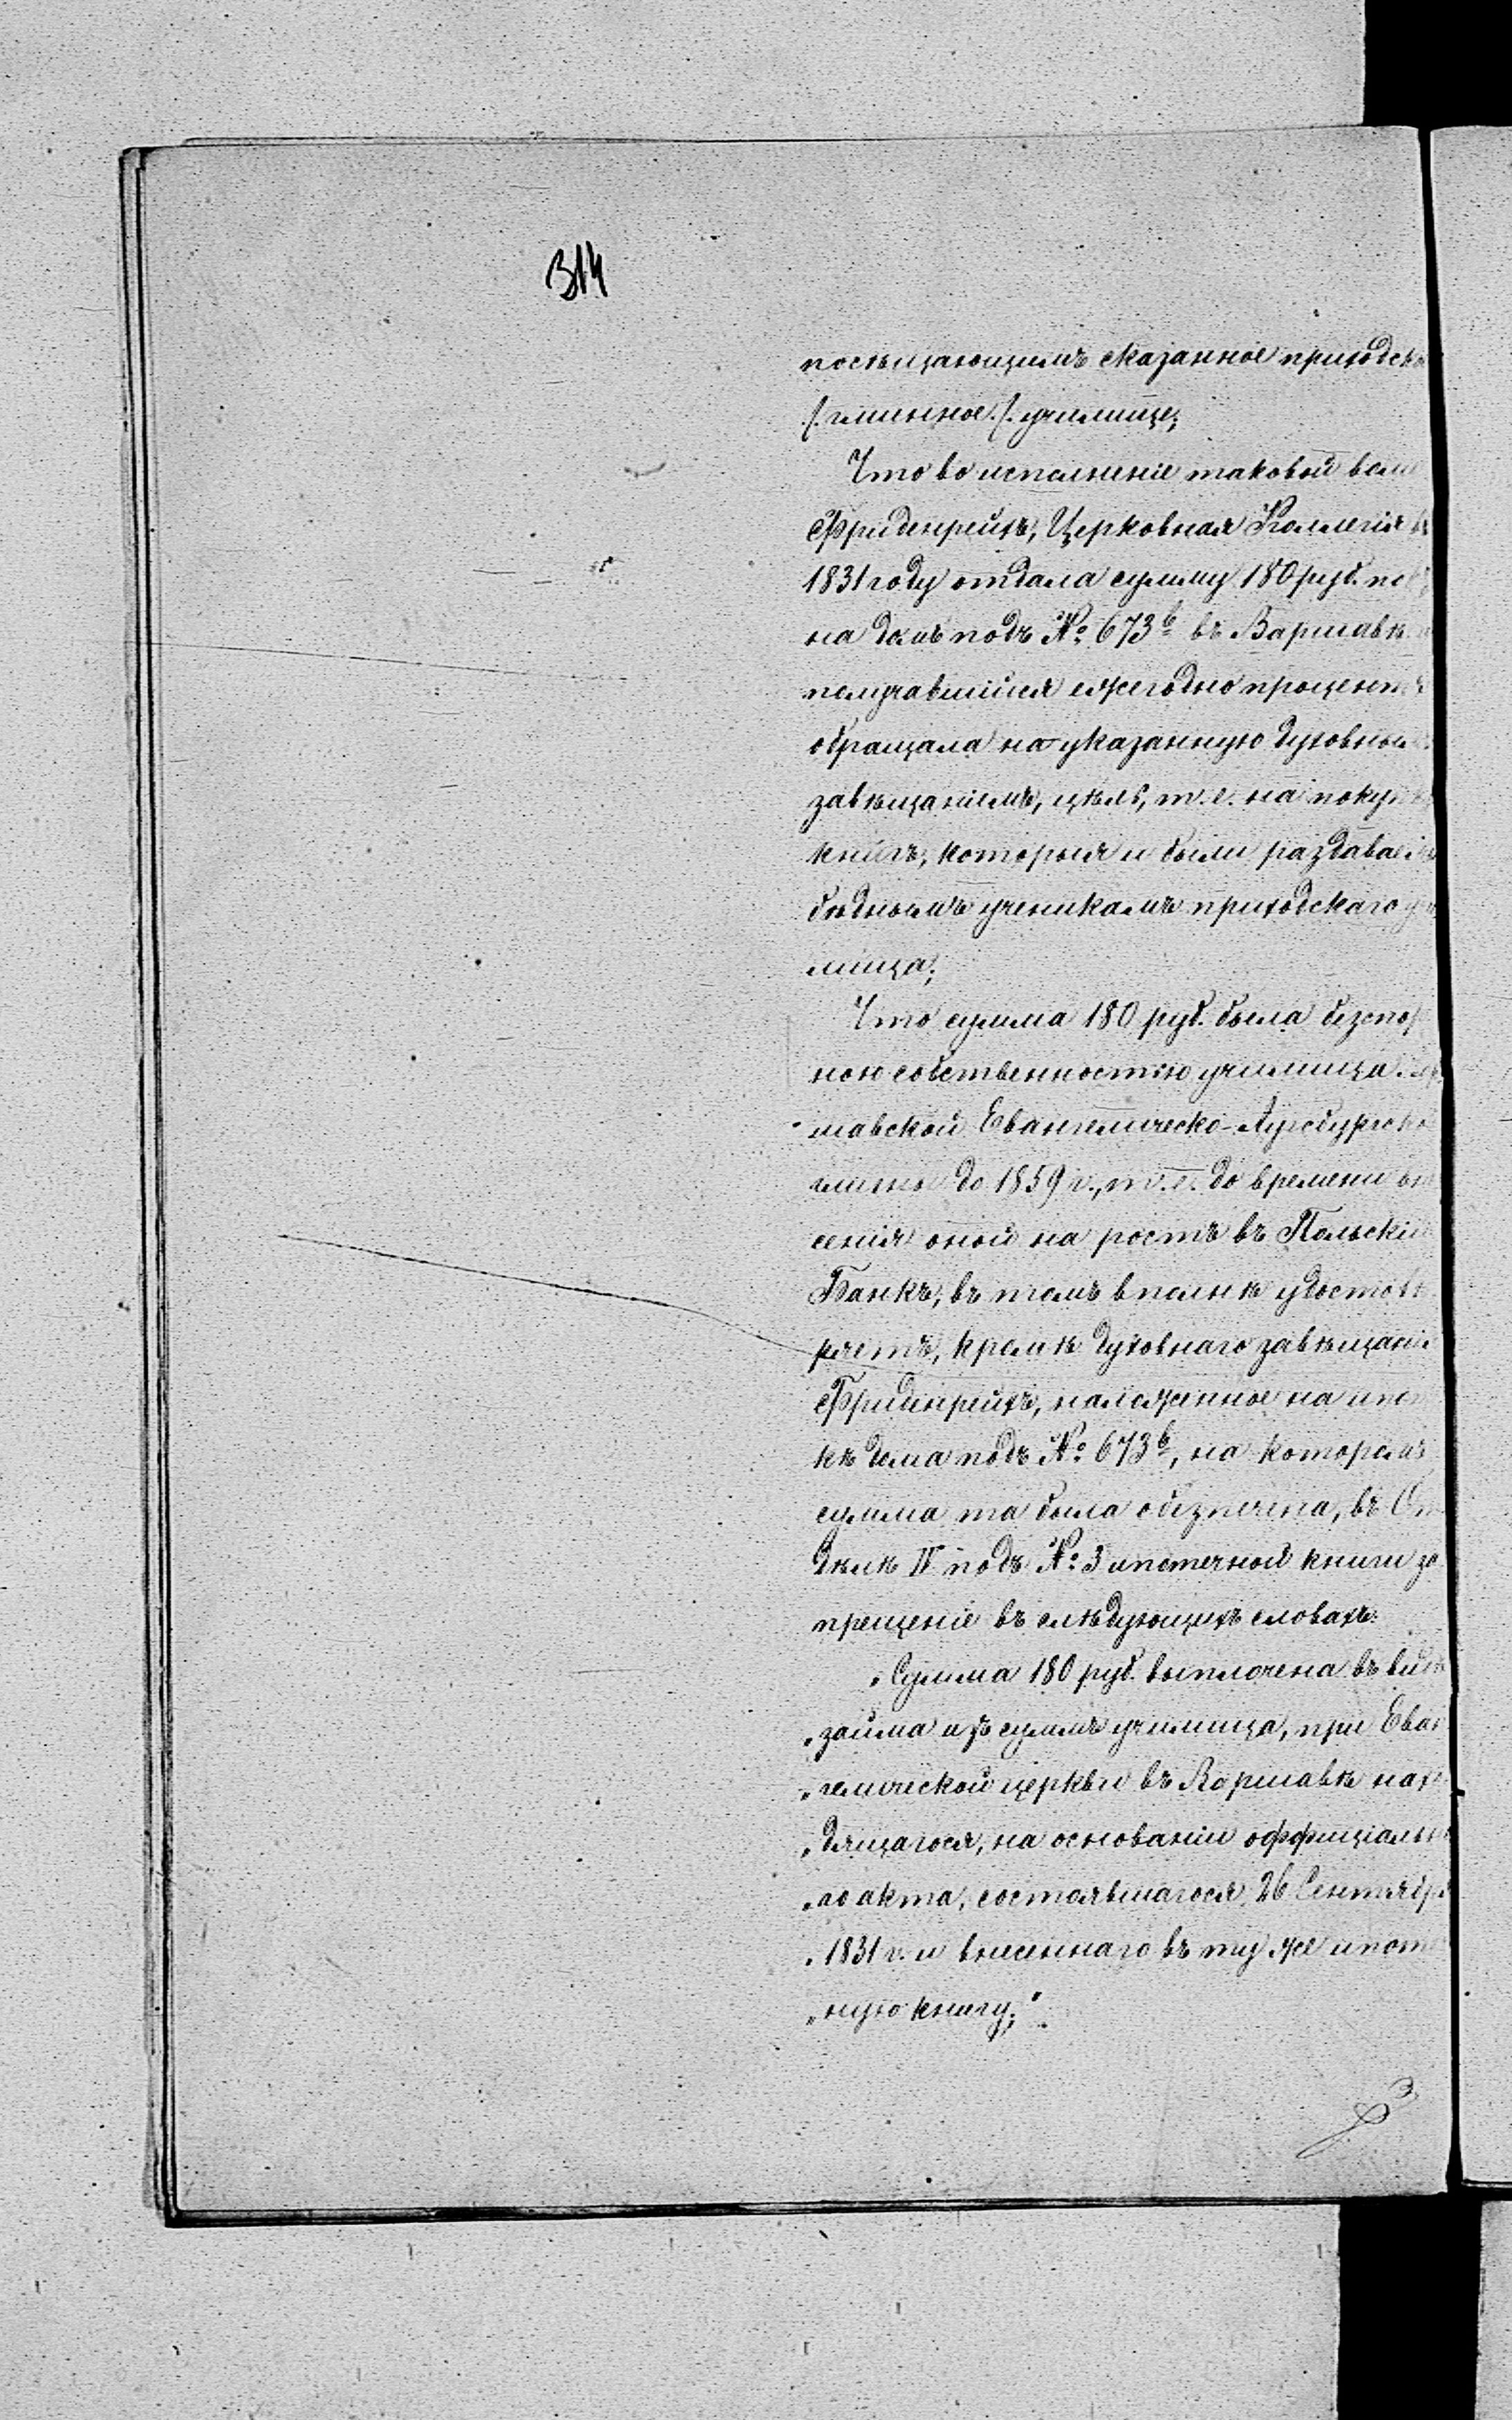 314
посѣщающимъ сказанное приходско
/. гминное ./. училище;
Что во исполненіе таковой воли
Фриденрейхъ, Церковная Коллегія въ
1831 году отдала сумму 180 руб. по
на домъ подъ № 673б въ Варшавѣ
получавшійся ежегодно процентъ
обращала на указанную духовным
завѣщаніемъ, цѣль, т. е. на покуп
книгъ, которыя и были раздавае
бѣднымъ ученикамъ приходскаго учи
лища;
Что сумма 180 руб. была безспор
ною собственностью училища
шавской Евангелическо-Аугсбургско
гмины до 1859 г., т. е. до времени вне
сенія оной на ростъ въ Польскій
Банкъ, въ томъ вполнѣ удостовѣ
ряетъ, кромѣ духовнаго завѣщанія
Фриденрейхъ, наложенное на ипо
кѣ дома подъ № 673б, на которомъ
сумма та была обезпечена, въ От
дѣлѣ IV подъ № 3 ипотечной книги за
прещеніе въ слѣдующихъ словахъ:
„Сумма 180 руб. выплочена въ видѣ
„займа изъ суммъ училища, при Еван
„гелической церкви въ Варшавѣ нахо
„дящагося, на основаніи оффиціальна
„го акта, состоявшагося 26 Сентября
„1831 г. и внесеннаго въ ту же ипот
„ную книгу;"